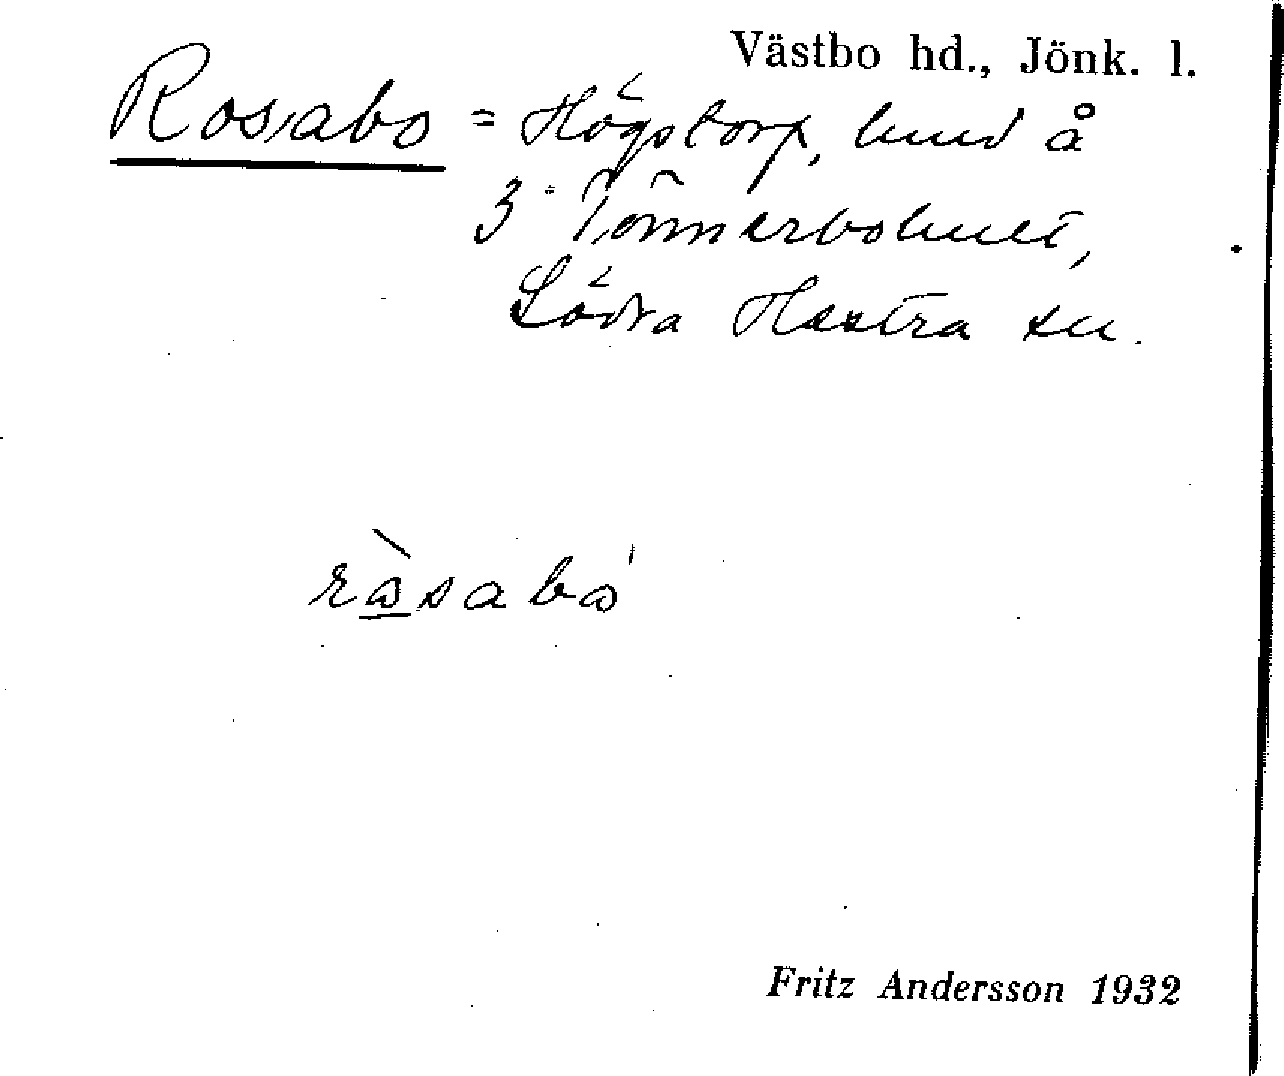 Västbo hd., Jönk. l.
Rosabo = Högstorp, lund å
3: Tönnerbohult,
Södra Hestra sn.
ràsabo'
Fritz Andersson 1932